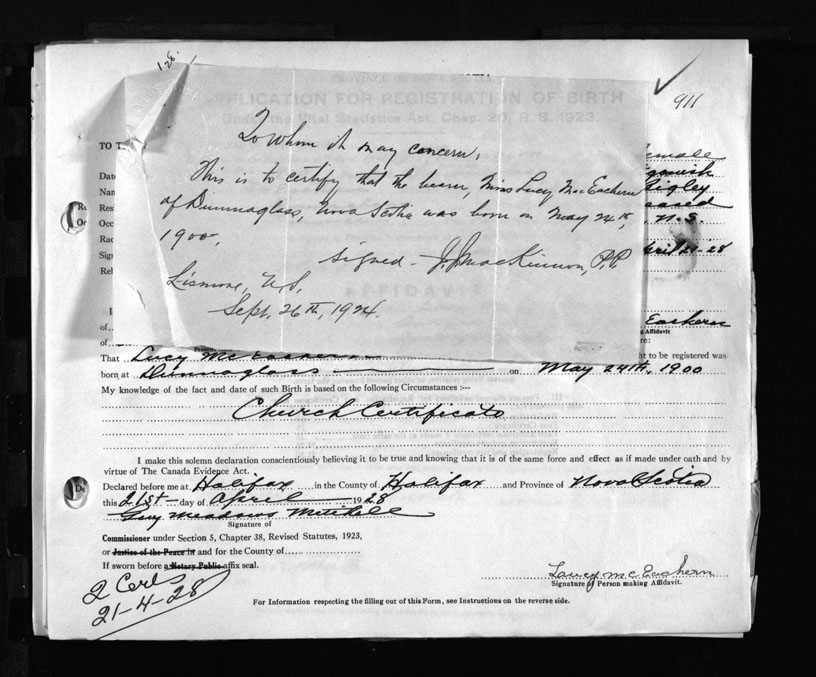 128.
911
PROVINCE OF NOVA SCOTIA
APPLICATION FOR REGISTRATION OF BIRTH
Under the Vital Statistics Act, Chap. 20, R. S. 1923.
To whom it may concern,
This is to certify that the bearer, Miss Lucy MacEachern
of Dunmaglass, Nova Scotia was born on May 24th,
1900.
Signed - J.J. MacKinnon, P.P.
Lismore, N.S.
Sept. 26th, 1924.
TO T
Date
Nam
Resi
Occ
Rac
Sign
Rel
emale
igley
N.S.
April 21-28
AFFIDAVIT
I
of
Eachern
Affidavit
of
re:
That Lucy McEachern
ht to be registered was
born at Dunmaglass on May 24th, 1900
My knowledge of the fact and date of such Birth is based on the following Circumstances :—
Church Certificate
I make this solemn declaration conscientiously believing it to be true and knowing that it is of the same force and effect as if made under oath and by
virtue of The Canada Evidence Act.
Declared before me at Halifax in the County of Halifax and Province of Nova Scotia
this 21st day of April 1928
Guy Meadows Mitchell
Signature of
Commissioner under Section 5, Chapter 38, Revised Statutes, 1923,
or Justice of the Peace in and for the County of
If sworn before a Notary Public affix seal.
2 Certs
21-4-28
Lawcy McEachern
Signature of Person making Affidavit.
For Information respecting the filling out of this Form, see Instructions on the reverse side.